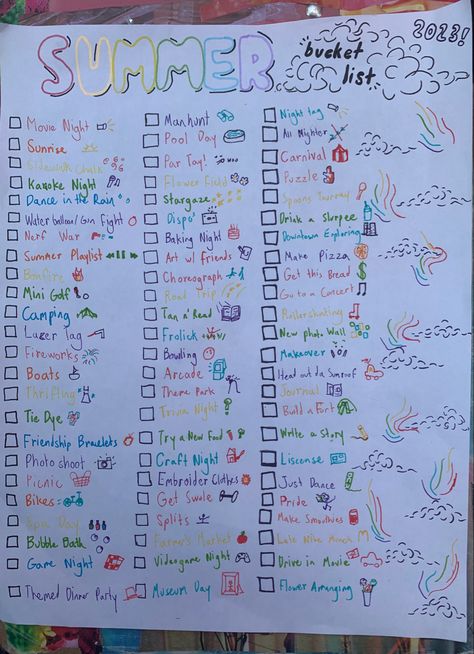 SUMMER
bucket list
2023!
Movie Night
Sunrise
Sidewalk Chalk
Karaoke Night
Dance in the Rain
Water balloon/Gun Fight
Nerf War
Summer Playlist
Bonfire
Mini Golf
Camping
Lazer Tag
Fireworks
Boats
Thrifting
Tie Dye
Friendship Bracelets
Photoshoot
Picnic
Bikes
Spa Day
Bubble Bath
Game Night
Themed Dinner Party
Manhunt
Pool Day
Par Tay!
Flower Field
Stargaze
Dispo
Baking Night
Art w/ friends
Choreograph
Road Trip
Tan n' Read
Frolick
Bowling
Arcade
Theme Park
Trivia Night
Try a New Food
Craft Night
Embroider Clothes
Get Swole
Splits
Farmer's Market
Videogame Night
Museum Day
Night tag
All Nighter
Carnival
Puzzle
Spoons
Drink a Slurpee
Downtown Exploring
Make Pizza
Get this Bread
Go to a Concert
Rollerskating
New photo Wall
Makeover
Head out da Sunroof
Journal
Build a Fort
Write a Story
Liscense
Just Dance
Pride
Make Smoothies
Late Nite
Drive in Movie
Flower Arranging